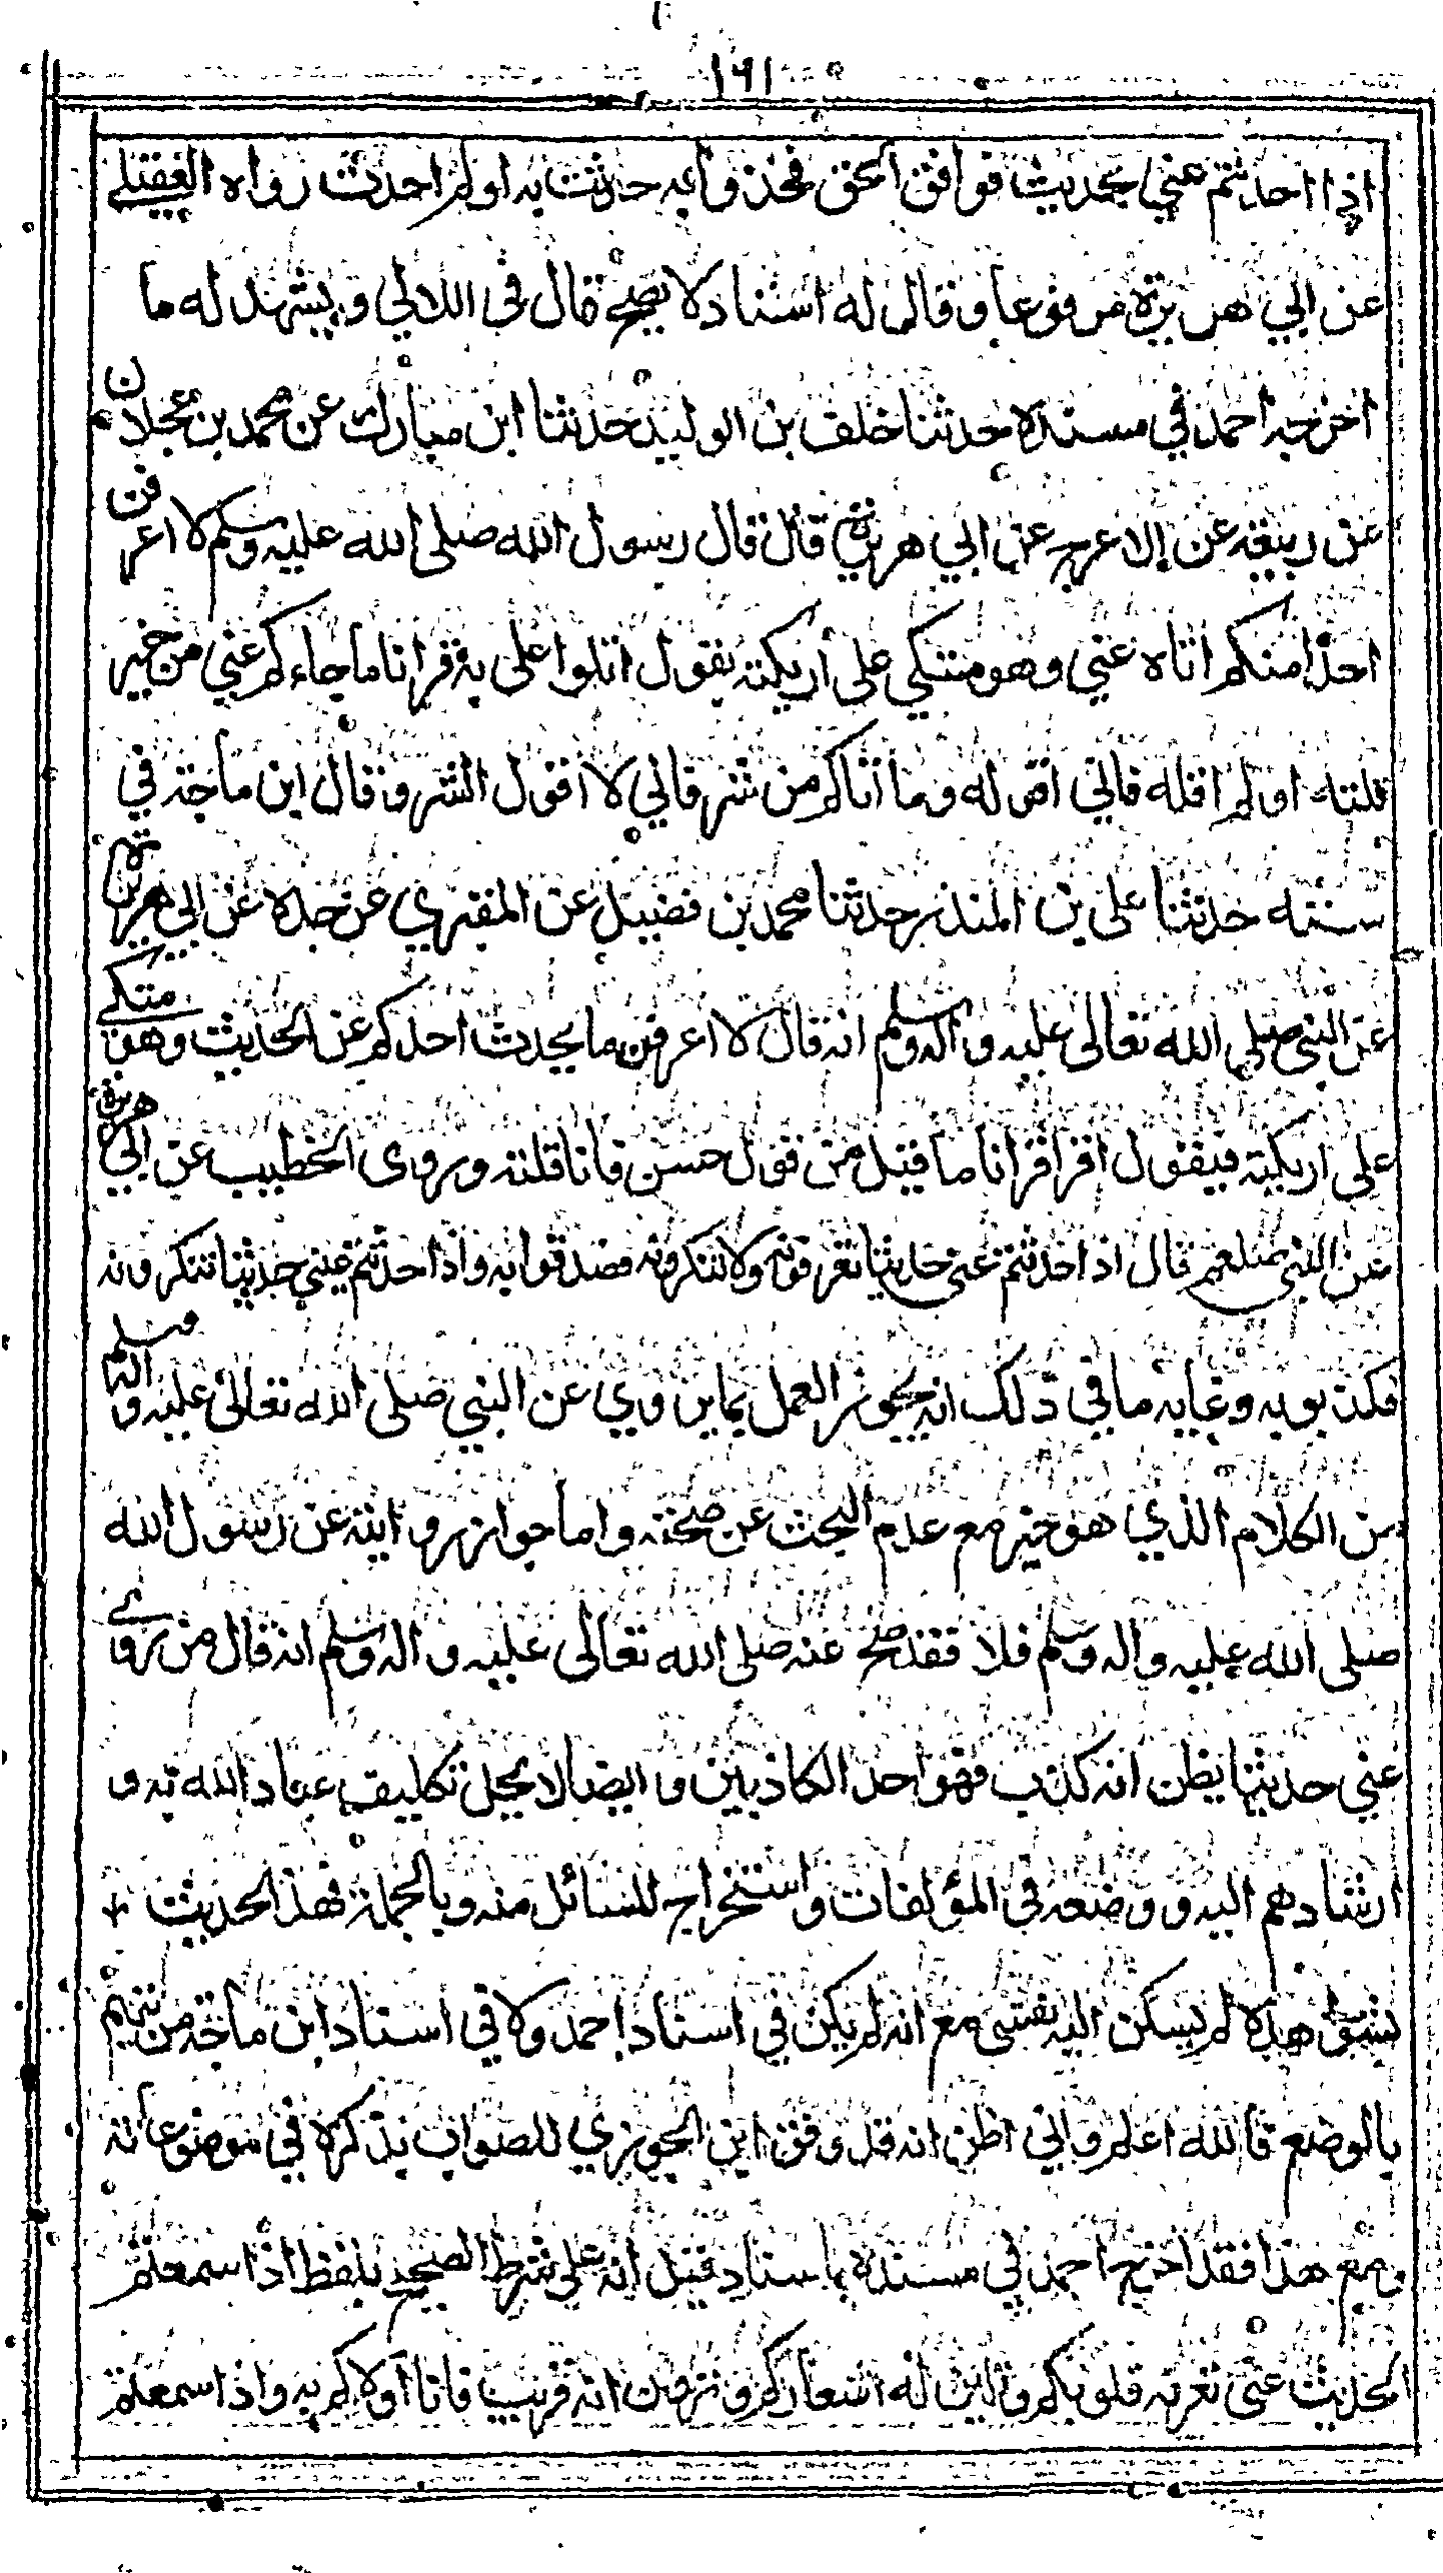 ١٩١
اذا احدثتم عني بحديث فوافق الحق فخذوا به حدثت به اولم احدث رواه العقيلي
عن ابي هريرة مرفوعا وقال له اسناد لا يصح قال في اللالي ويشهد له ما
اخرجه احمد في مسنده حدثنا خلف بن الوليد حدثنا ابن مبارك عن محمد بن عجلان
عن ربيعه عن الاعرج عن ابي هريرة قال قال رسول الله صلى الله عليه وسلم لا اعرفن
احدا منكم اتاه عني وهو متكي على أريكته يقول اتلوا على به قرانا ما جاءكم عني من خير
قلته اولم اقله فاني اقوله وما اتاكم من شر فاني لا اقول الشر وقال ابن ماجه في
سننه حدثنا على بن المنذر حدثنا محمد بن فضيل عن المقبري عن جده عن ابي هريرة
عن النبي صلى الله تعالى عليه واله وسلم انه قال لا اعرفن ما يحدث احدكم عن الحديث وهو متكي
على اريكته فيقول اقرا قرانا ما قيل من قول حسن فانا قلته وروى الخطيب عن ابي هريرة
عن النبي صلعم قال اذا حدثتم عني حديثا تعرفونه ولا تنكرونه فصدقوا به واذا حدثتم عني حديثا تنكرونه
فكذبوا به وغايه ما في ذلك انه يجوز العمل بما يروي عن النبي صلى الله تعالى عليه واله وسلم
من الكلام الذي هو خير مع عدم البحث عن صحته واما جواز روايته عن رسول الله
صلى الله عليه واله وسلم فلا فقد صح عنه صلى الله تعالى عليه واله وسلم انه قال من روى
عني حديثا يظن انه كذب فهو احد الكاذبين وايضا لا يحل تكليف عباد الله به و
ارشادهم اليه ووضعه في المؤلفات واستخراج المسائل منه وبالجملة فهذا الحديث
بشواهده لم يسكن اليه نفسي مع انه لم يكن في اسناد احمد ولا في اسناد ابن ماجه من يتهم
بالوضع فالله اعلم واني اظن انه قد وفق ابن الجوزي للصواب بذكره في موضوعاته
ومع هذا فقد اخرج احمد في مسنده باسناد قيل انه على شرط الصحيح بلفظ اذا سمعتم
الحديث عني تعرفه قلوبكم وتلين له اشعاركم وترون انه قريب فانا اولاكم به واذا سمعتم